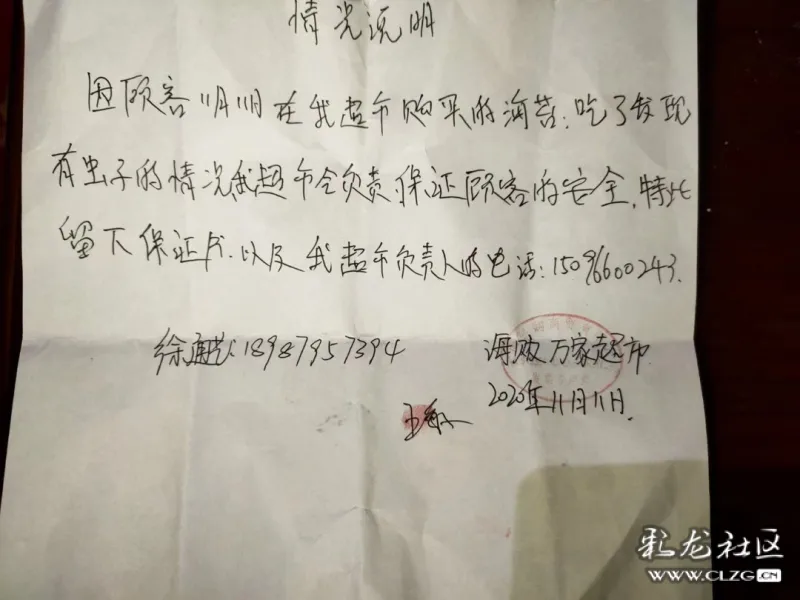 情况说明
因顾客11月11日在我超市购买的海苔,吃了发现
有虫子的情况我超市会负责保证顾客的安全,特此
留下保证书.以及我超市负责人的电话:15096600243.
徐通 18987957394
海 万家超市.
王敏
2020年11月11日.
彩龙社区
WWW.CLZG.CN